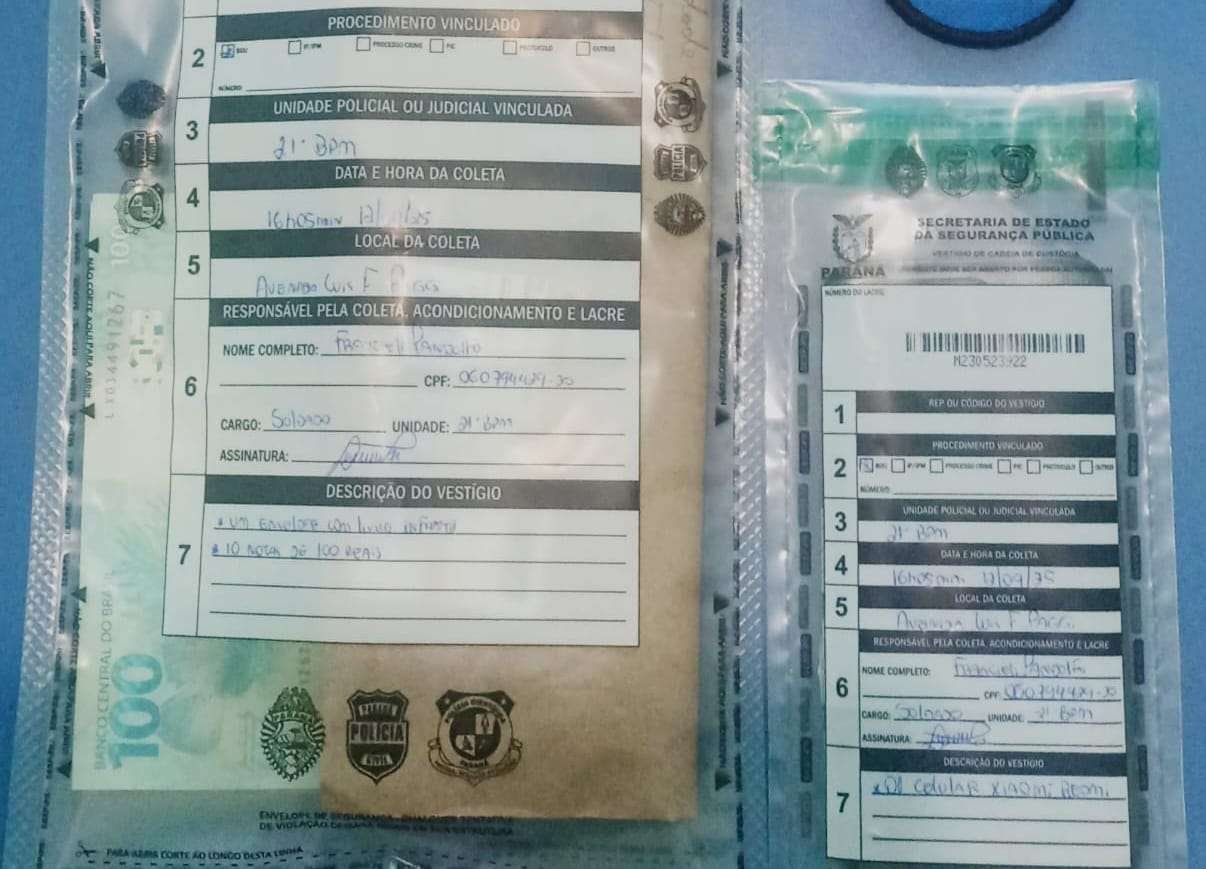 PROCEDIMENTO VINCULADO
2
BOU IP/IPM PROCESSO CRIME PIC PROTOCOLO OUTROS
NÚMERO:
UNIDADE POLICIAL OU JUDICIAL VINCULADA
3
21º BPM
DATA E HORA DA COLETA
4
16h05min
LOCAL DA COLETA
5
Avenida Luis F
RESPONSÁVEL PELA COLETA, ACONDICIONAMENTO E LACRE
6
NOME COMPLETO: Francieli
CPF:
CARGO: Soldado UNIDADE: 21º BPM
ASSINATURA:
DESCRIÇÃO DO VESTÍGIO
7
um envelope com livro infantil
10 notas de 100 reais
BANCO CENTRAL DO BRASIL
100
PARANÁ
POLÍCIA
CIVIL
ENVELOPE DE SEGURANÇA
PARA ABRIR CORTE AO LONGO DESTA LINHA
NÃO CORTE AQUI PARA ABRIR
SECRETARIA DE ESTADO
DA SEGURANÇA PÚBLICA
VESTÍGIO DE CADEIA DE CUSTÓDIA
PARANÁ
NÚMERO DO LACRE
M230523922
1
REP OU CÓDIGO DO VESTÍGIO
PROCEDIMENTO VINCULADO
2
BOU IP/IPM PROCESSO CRIME PIC PROTOCOLO OUTROS
NÚMERO:
UNIDADE POLICIAL OU JUDICIAL VINCULADA
3
21º BPM
DATA E HORA DA COLETA
4
16h05min 17/09/25
LOCAL DA COLETA
5
Avenida Luis F
RESPONSÁVEL PELA COLETA, ACONDICIONAMENTO E LACRE
6
NOME COMPLETO: Francieli
CPF:
CARGO: Soldado UNIDADE: 21º BPM
ASSINATURA:
DESCRIÇÃO DO VESTÍGIO
7
01 celular Xiaomi Redmi